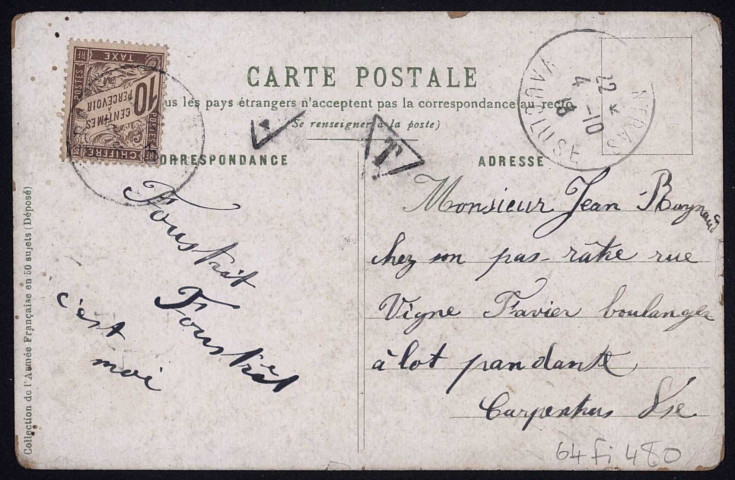 CARTE POSTALE
us les pays étrangers n'acceptent pas la correspondance au recto
(Se renseigner à la poste)
CORRESPONDANCE
ADRESSE
TAXE
10
CENTIMES
A PERCEVOIR
CHIFFRE
T
12 *
4 -10
VAUCLUSE
Foustrit
Foustrit
c'est
moi
Monsieur Jean Raynaud
chez son pas-râtre rue
Vigne Favier boulanger
à lot pandante
Carpentras Vse
64 fi 480
Collection de l'Armée Française en 50 sujets (Déposé)